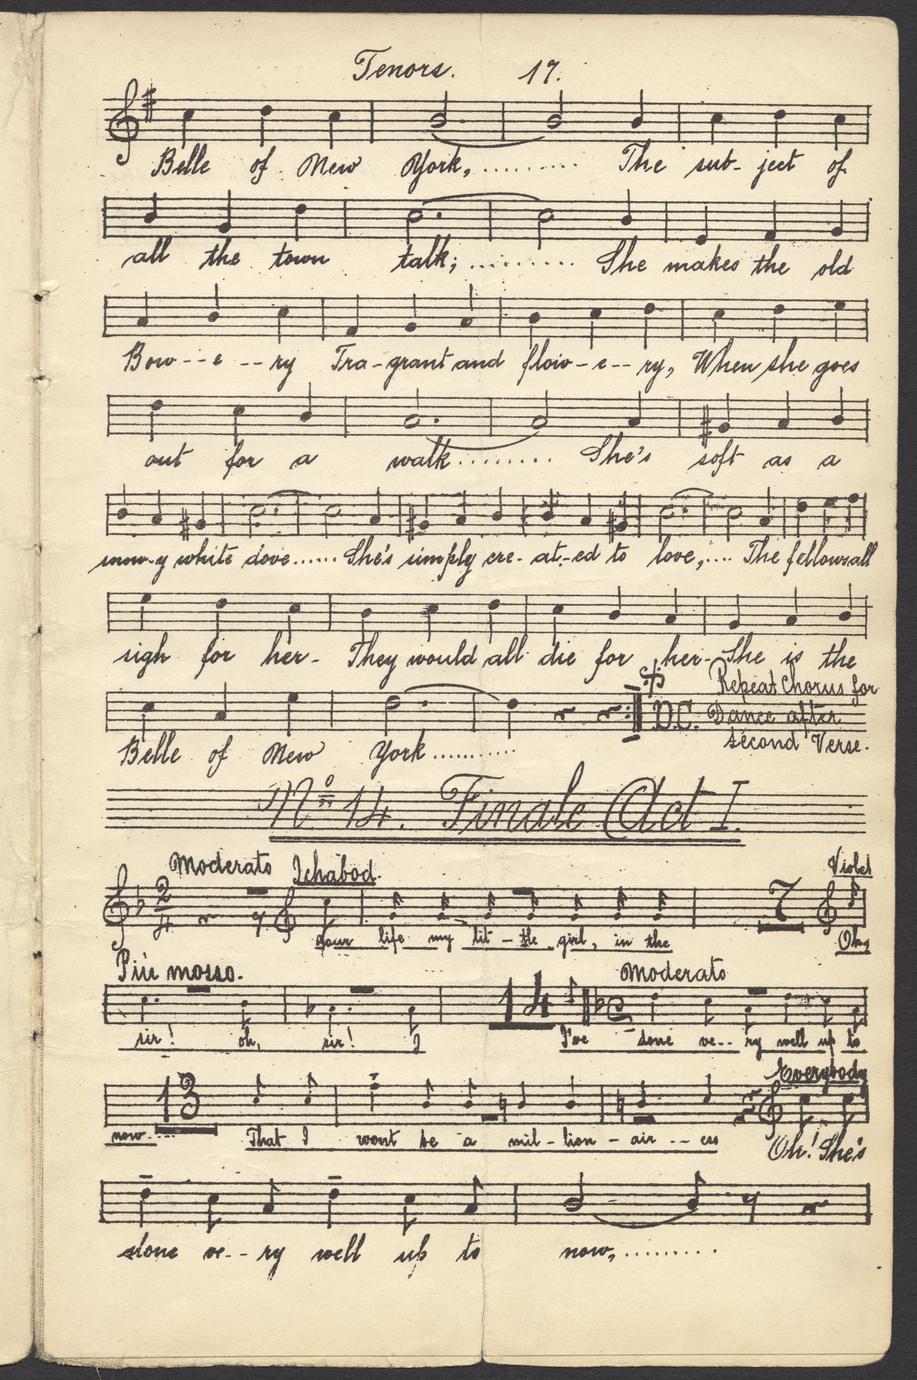 Tenors. 17.
Belle of New York, ......... The sub- ject of
all the town talk; ......... She makes the old
Bow--e--ry Fra-grant and flow-e--ry, When she goes
out for a walk ......... She's soft as a
snow-y white dove ...... She's simply cre-at-ed to love, .... The fellows all
sigh for her- They would all die for her- She is the
Repeat Chorus for
D.C. Dance after
second Verse.
Belle of New York .........
No 14. Finale Act I.
Moderato Ichabod. Violet
2/4 7
Your life my lit-tle girl, in the Oh,
Più mosso. Moderato
14
sir! oh, sir! I I've done ve--ry well up to
Everybody
13
now. That I wont be a mil-lion-air--ess Oh! She's
done ve--ry well up to now, .........